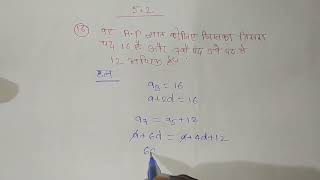 5.2
(16) वह A.P ज्ञात कीजिए जिसका तीसरा
पद 16 है और 7वाँ पद 5वें पद से
12 अधिक है।
हल
a₃ = 16
a+2d = 16
a₇ = a₅+12
a+6d = a+4d+12